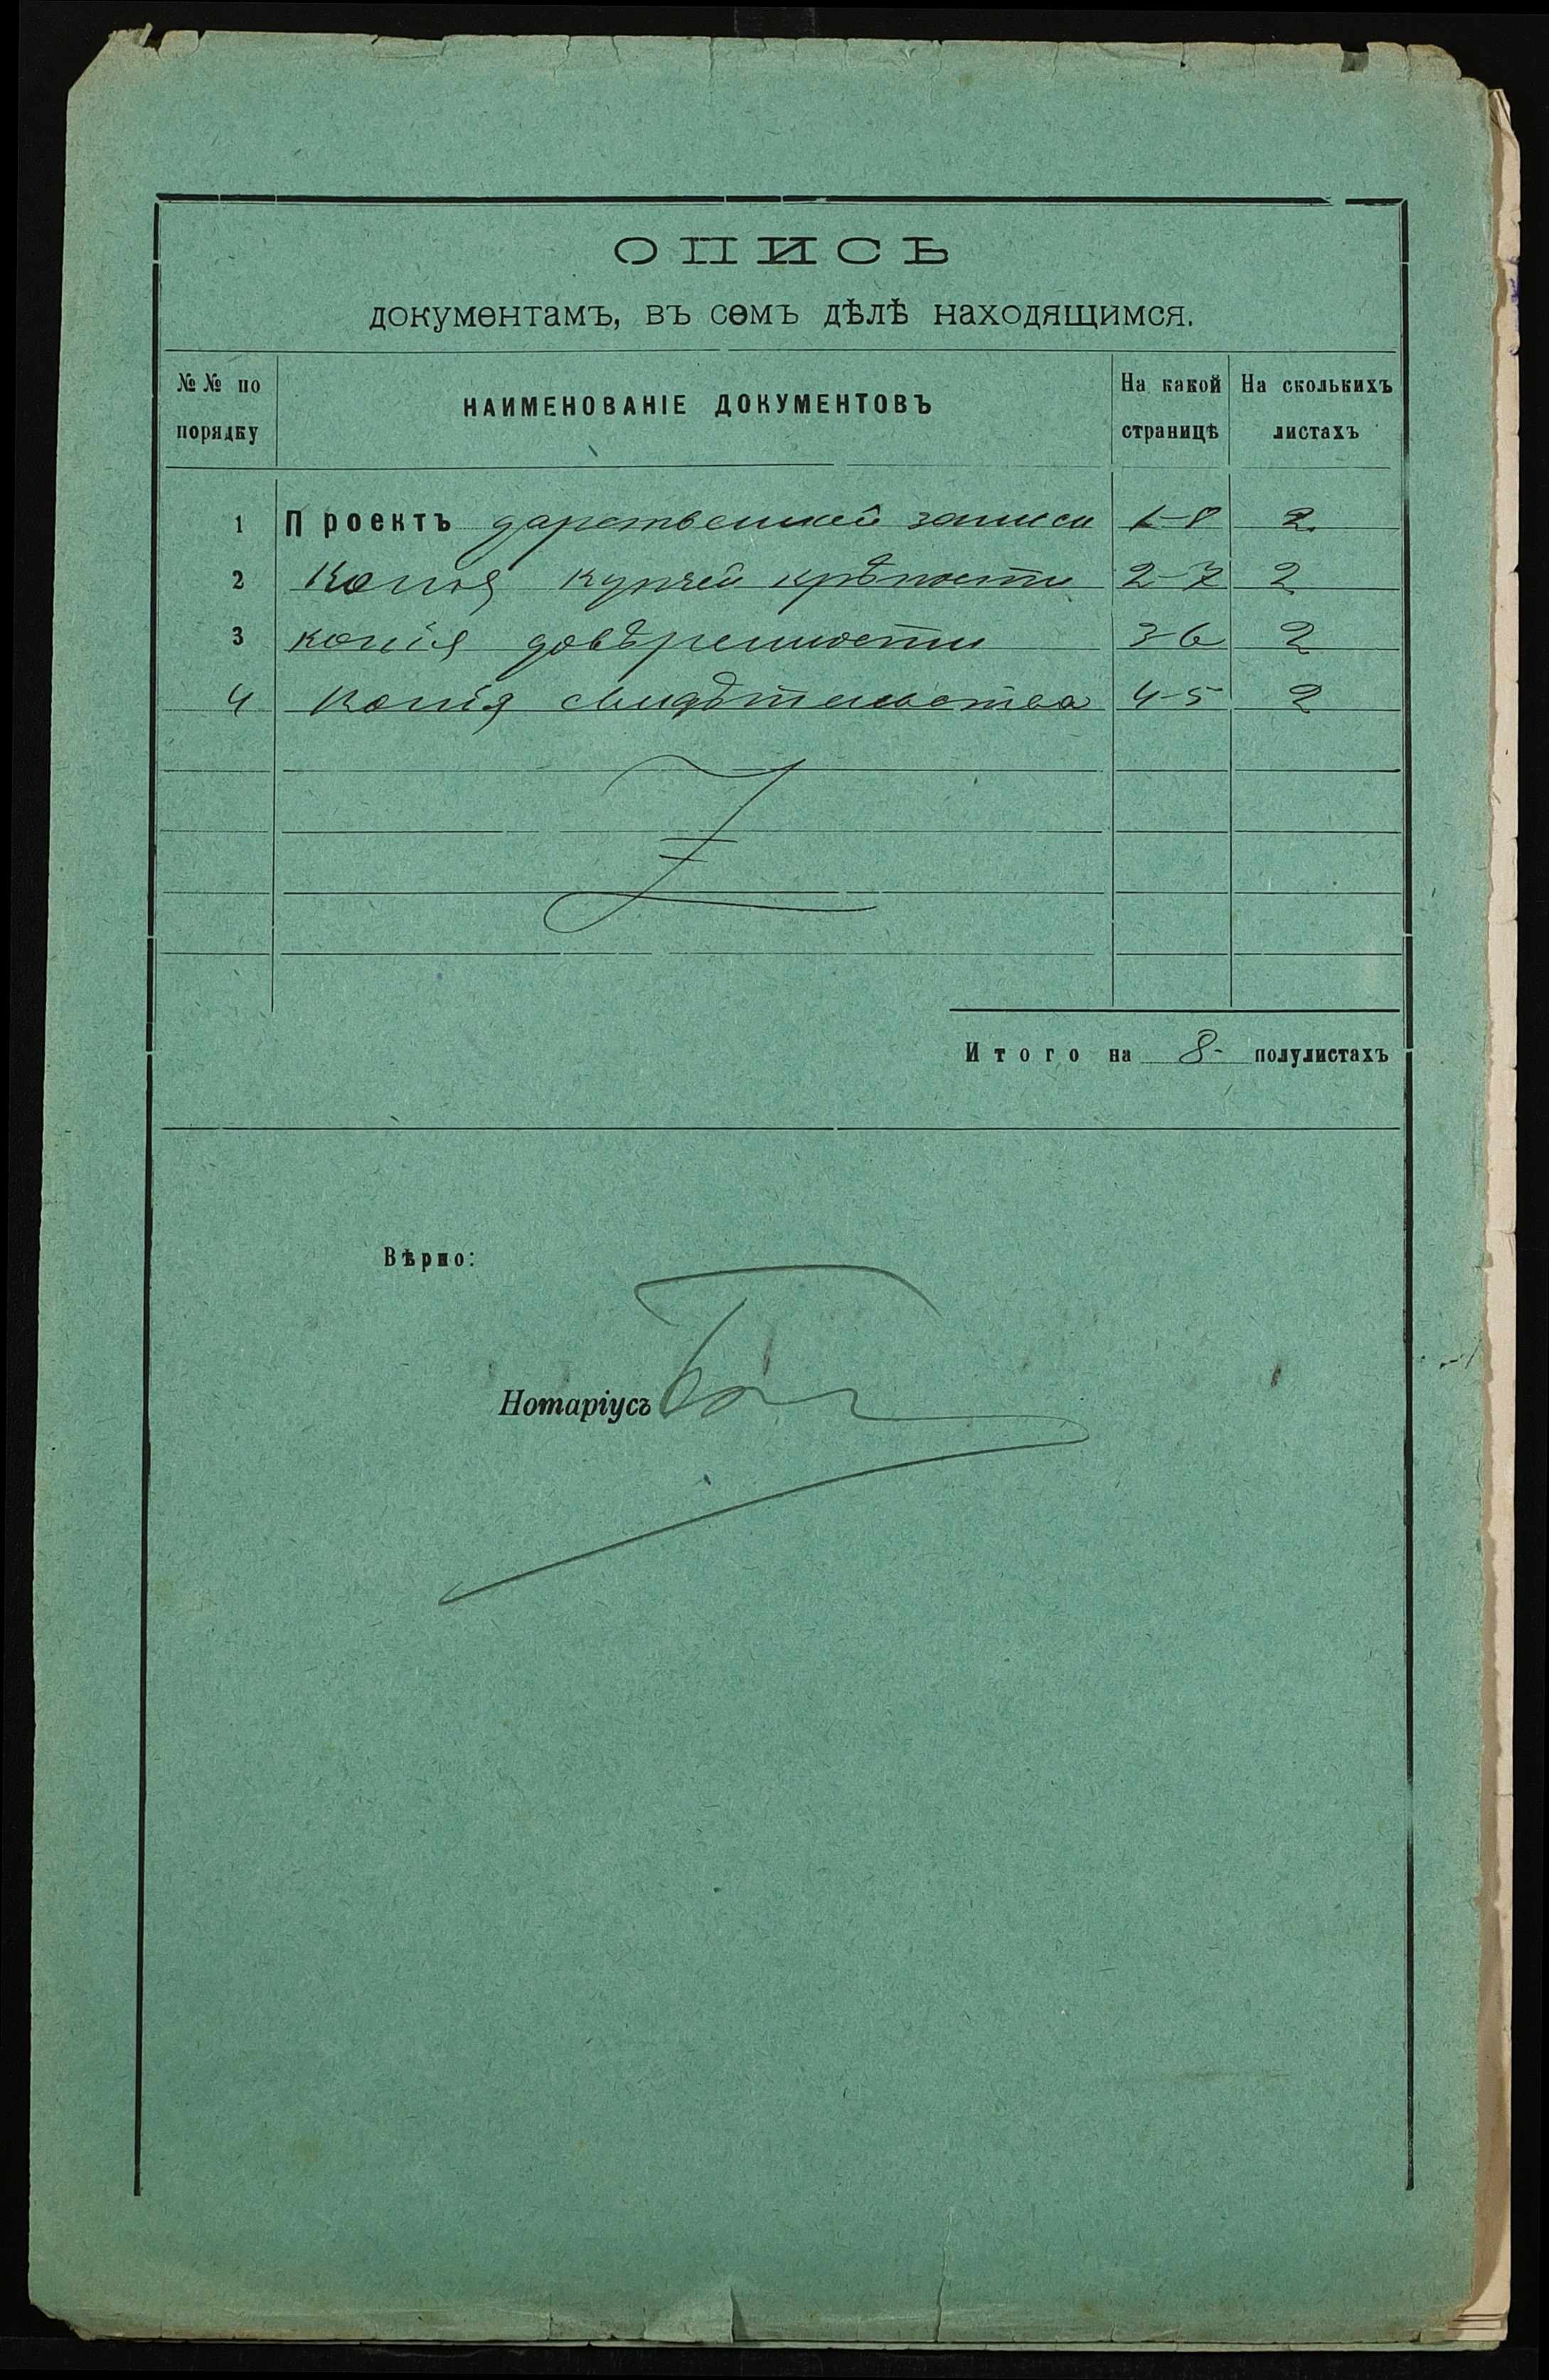 ОПИСЬ
документамъ, въ семъ дѣлѣ находящимся.
№№ по порядку НАИМЕНОВАНІЕ ДОКУМЕНТОВЪ На какой страницѣ На сколькихъ листахъ
1 Проектъ дарственной записи 1-8 2
2 Копія купчей крѣпости 2-7 2
3 копія довѣренности 3-6 2
4 Копія свидѣтельства 4-5 2
Итого на 8- полулистахъ
Вѣрно:
Нотаріусъ